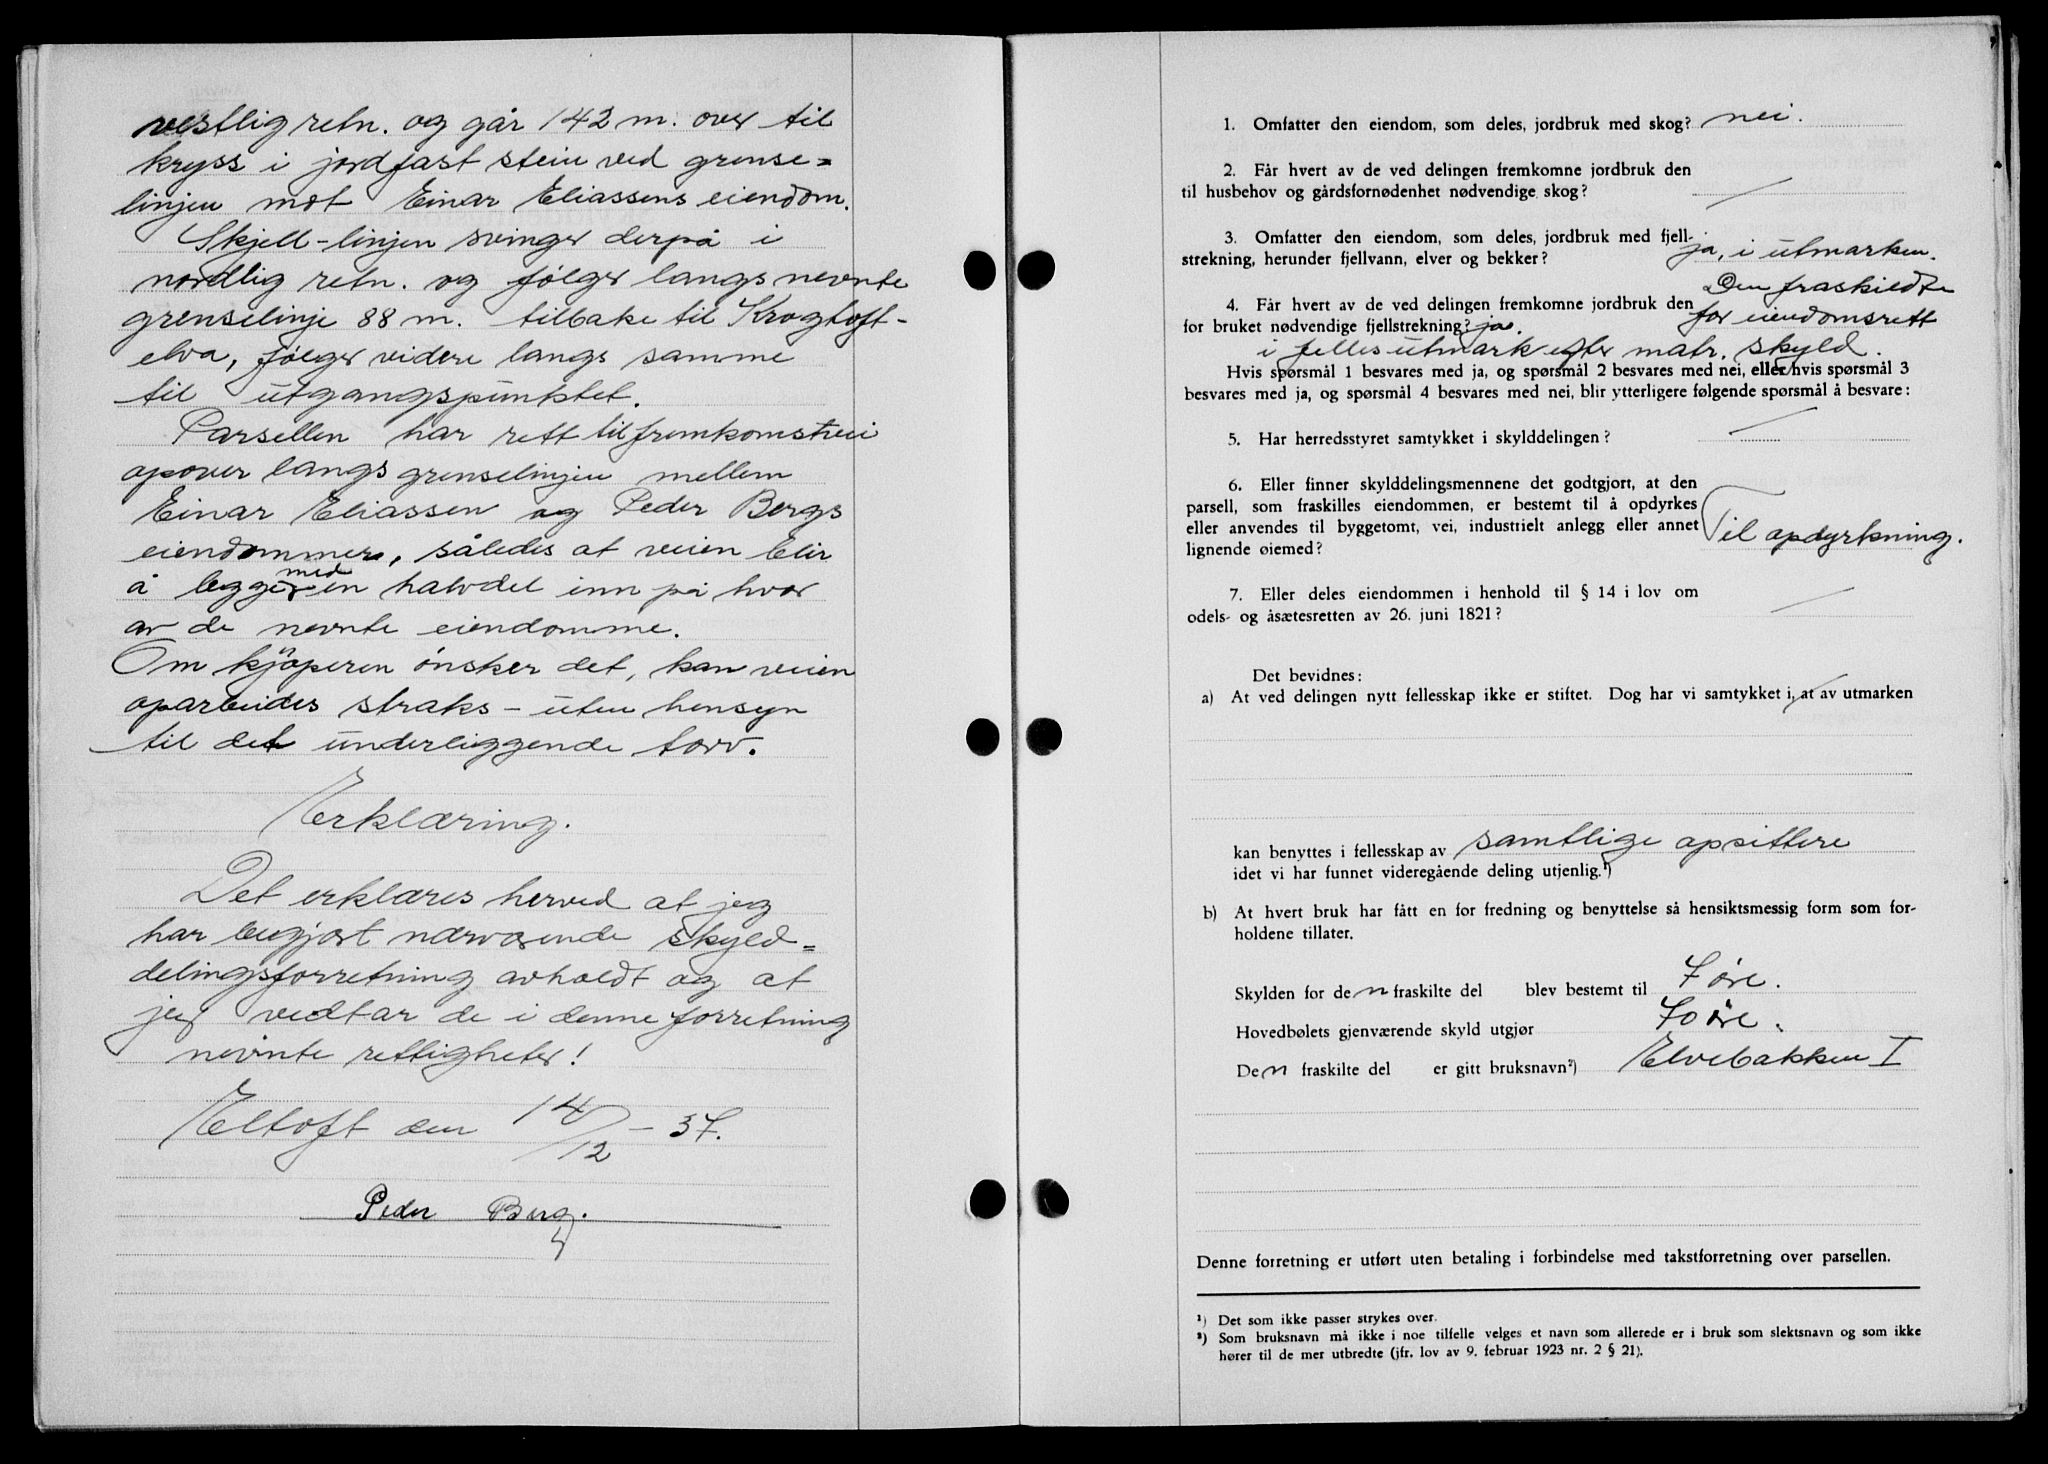 vestlig retn. og går 142 m. over til
kryss i jordfast stein ved grense=
linjen mot Einar Eliassens eiendom.
Skjell-linjen svinger derpå i
nordlig retn. og følger langs nevnte
grenselinje 88 m. tilbake til Krogtoft-
elva, følger videre langs samme
til utgangspunktet.
Parsellen har rett til fremkomstvei
opover langs grenselinjen mellem
Einar Eliassen og Peder Bergs
eiendommer, således at veien blir
å legge med en halvdel inn på hver
av de nevnte eiendomme.
Om kjøperen ønsker det, kan veien
oparbeides straks - uten hensyn
til det underliggende torv.
Erklæring.
Det erklæres herved at jeg
har begjært nærværende skyld=
delingsforretning avholdt og at
jeg vedtar de i denne forretning
nevnte rettigheter!
Eltoft den 14/12 - 37.
Peder Berg.
1. Omfatter den eiendom, som deles, jordbruk med skog? nei.
2. Får hvert av de ved delingen fremkomne jordbruk den
til husbehov og gårdsfornødenhet nødvendige skog? /
3. Omfatter den eiendom, som deles, jordbruk med fjell-
strekning, herunder fjellvann, elver og bekker? ja, i utmarken.
4. Får hvert av de ved delingen fremkomne jordbruk den Den fraskildte
for bruket nødvendige fjellstrekning? ja. får eiendomsrett
i felles utmark efter matr. skyld.
Hvis spørsmål 1 besvares med ja, og spørsmål 2 besvares med nei, eller hvis spørsmål 3
besvares med ja, og spørsmål 4 besvares med nei, blir ytterligere følgende spørsmål å besvare:
5. Har herredsstyret samtykket i skylddelingen? /
6. Eller finner skylddelingsmennene det godtgjort, at den
parsell, som fraskilles eiendommen, er bestemt til å opdyrkes
eller anvendes til byggetomt, vei, industrielt anlegg eller annet
lignende øiemed? Til opdyrkning.
7. Eller deles eiendommen i henhold til § 14 i lov om
odels- og åsætesretten av 26. juni 1821? /
Det bevidnes:
a) At ved delingen nytt fellesskap ikke er stiftet. Dog har vi samtykket i, at av utmarken
kan benyttes i fellesskap av samtlige opsittere
idet vi har funnet videregående deling utjenlig.¹)
b) At hvert bruk har fått en for fredning og benyttelse så hensiktsmessig form som for-
holdene tillater.
Skylden for den fraskilte del blev bestemt til 7 øre.
Hovedbølets gjenværende skyld utgjør 70 øre.
Den fraskilte del er gitt bruksnavn²) Elvebakken I
Denne forretning er utført uten betaling i forbindelse med takstforretning over parsellen.
¹) Det som ikke passer strykes over.
²) Som bruksnavn må ikke i noe tilfelle velges et navn som allerede er i bruk som slektsnavn og som ikke
hører til de mer utbredte (jfr. lov av 9. februar 1923 nr. 2 § 21).